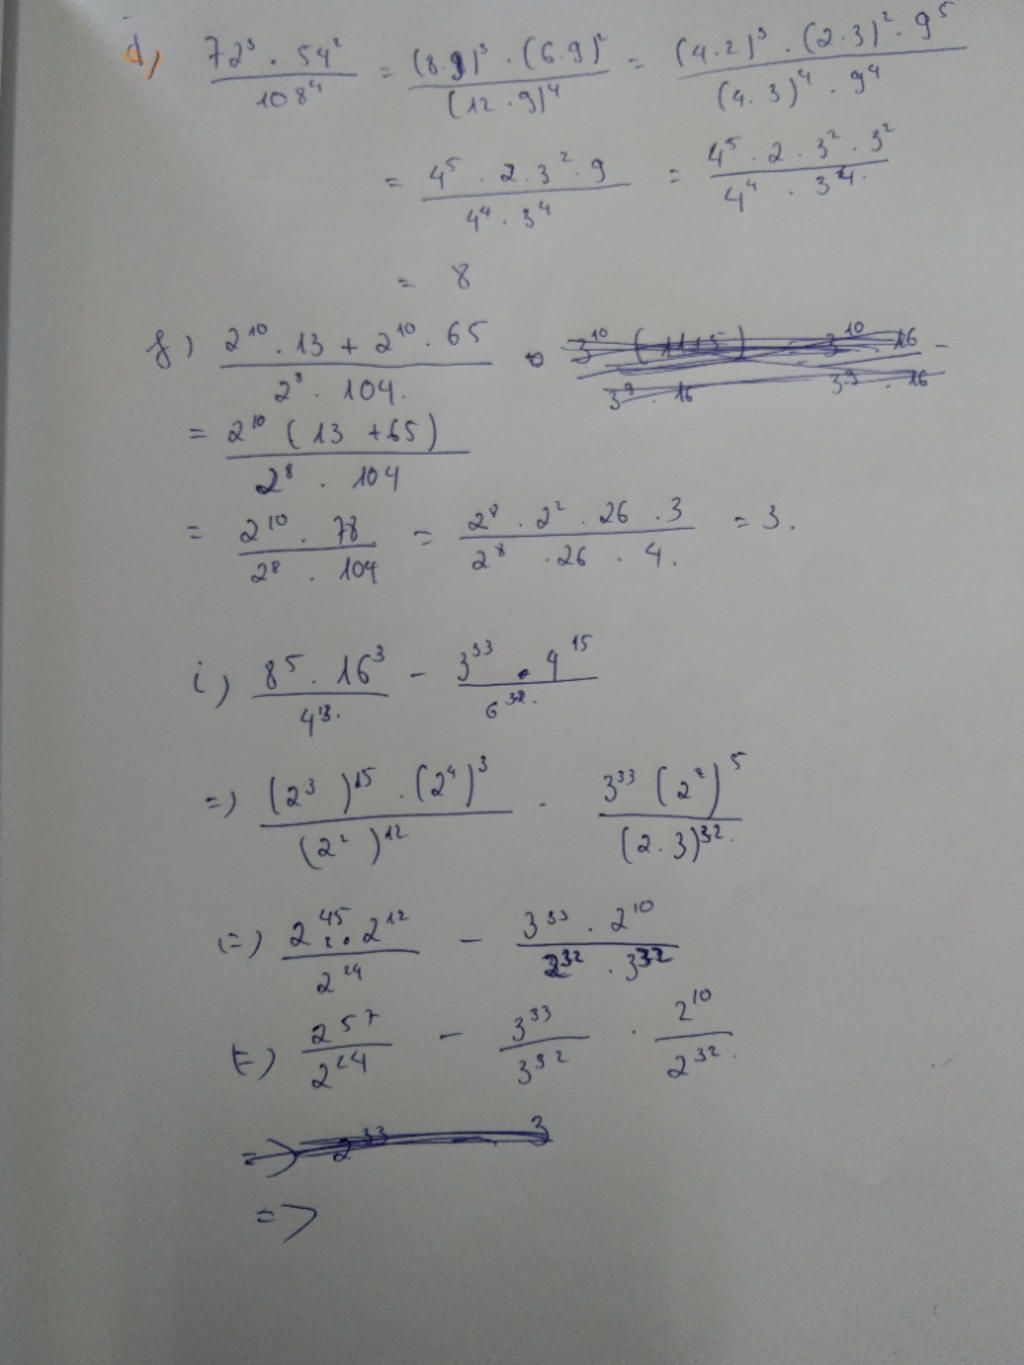 d) 72³ . 54² / 108⁴ = (8.9)³ . (6.9)² / (12.9)⁴ = (4.2)³ . (2.3)² . 9⁵ / (4.3)⁴ . 9⁴
= 4⁵ . 2 . 3² . 9 / 4⁴ . 3⁴ = 4⁵ . 2 . 3² . 3² / 4⁴ . 3⁴.
= 8
f) 2¹⁰ . 13 + 2¹⁰ . 65 / 2⁸ . 104.
= 2¹⁰ (13 + 65) / 2⁸ . 104
= 2¹⁰ . 78 / 2⁸ . 104 = 2⁸ . 2² . 26 . 3 / 2⁸ . 26 . 4. = 3.
i) 8⁵ . 16³ / 4¹³. - 3³³ . 4¹⁵ / 6³².
=) (2³)¹⁵ . (2⁴)³ / (2²)¹² - 3³³ (2²)⁵ / (2.3)³².
=) 2⁴⁵ . 2¹² / 2²⁴ - 3³³ . 2¹⁰ / 2³² . 3³²
=) 2⁵⁷ / 2²⁴ - 3³³ / 3³² . 2¹⁰ / 2³².
=>